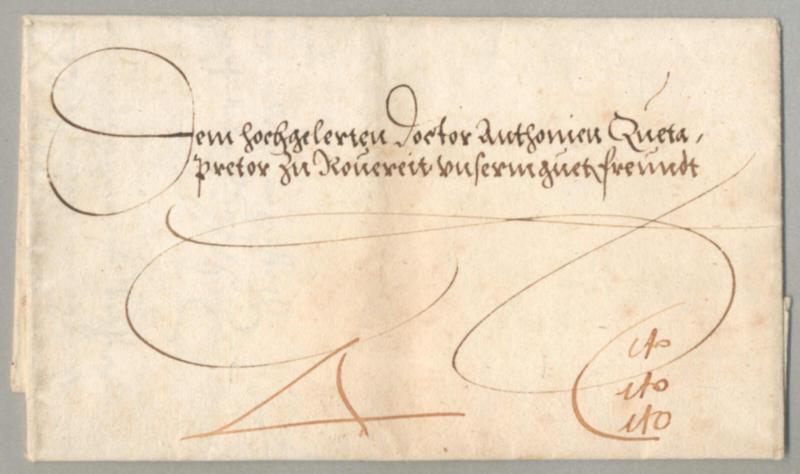 Dem hochgelerten Doctor Anthonien Queta,
pretor zu Rouereit vnserm guetn freundt
Cito
Cito
Cito